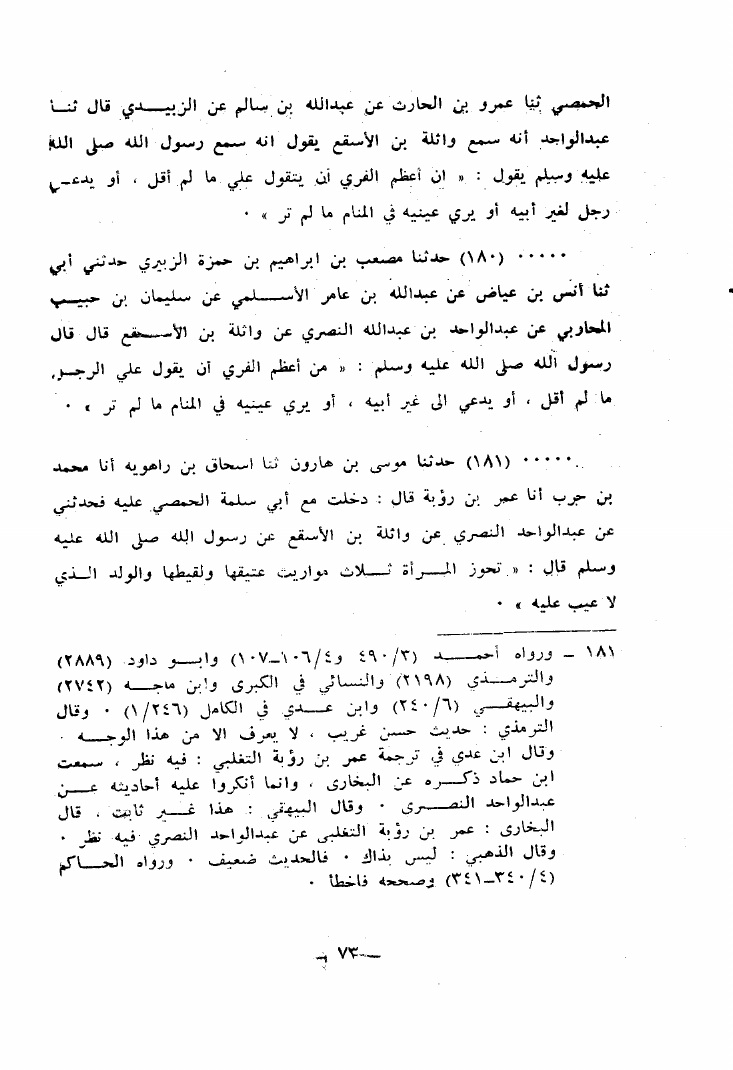 الحمصي ثنا عمرو بن الحارث عن عبدالله بن سالم عن الزبيـــدي قال ثنـا
عبدالواحد أنه سمع واثلة بن الأسقع يقول انه سمع رسول الله صلى الله
عليه وسلم يقول : « ان أعظم الفري أن يتقول علي ما لم أقل ، أو يدعـي
رجل لغير أبيه أو يري عينيه في المنام ما لم تر » ٠
٠٠٠٠٠ (١٨٠) حدثنا مصعب بن ابراهيم بن حمزة الزبيري حدثني أبي
ثنا أنس بن عياض عن عبدالله بن عامر الأســـلمي عن سليمان بن حبيـب
المحاربي عن عبدالواحد بن عبدالله النصري عن واثلة بن الأســـقع قال قال
رسول الله صلى الله عليه وسلم : « من أعظم الفري أن يقول علي الرجـل
ما لم أقل ، أو يدعي الى غير أبيه ، أو يري عينيه في المنام ما لم تر » ٠
٠٠٠٠٠ (١٨١) حدثنا موسى بن هارون ثنا اسحاق بن راهويه أنا محمد
بن حرب أنا عمر بن رؤبة قال : دخلت مع أبي سلمة الحمصي عليه فحدثني
عن عبدالواحد النصري عن واثلة بن الأسقع عن رسول الله صلى الله عليه
وسلم قال : « تحوز المــرأة ثــلاث مواريث عتيقها ولقيطها والولد الـذي
لا عيب عليه » ٠
١٨١ ـ ورواه أحمـــد (٤٩٠/٣ و١٠٦/٤ـ١٠٧) وابـــو داود (٢٨٨٩)
والترمـــذي (٢١٩٨) والنسائي في الكبرى وابن ماجــه (٢٧٤٢)
والبيهقـــي (٢٤٠/٦) وابن عـــدي في الكامل (١/٢٤٦) ٠ وقال
الترمذي : حديث حسن غريب ، لا يعرف الا من هذا الوجـــه ٠
وقال ابن عدي في ترجمة عمر بن رؤبة التغلبي : فيه نظر ، سمعت
ابن حماد ذكـــره عن البخارى ، وانما أنكروا عليه أحاديثه عـــن
عبدالواحد النصـــرى ٠ وقال البيهقي : هذا غـــير ثابت ، قال
البخارى : عمر بن رؤبة التغلبى عن عبدالواحد النصري فيه نظر ٠
وقال الذهبي : ليس بذاك ٠ فالحديث ضعيف ٠ ورواه الحـــاكم
(٣٤٠/٤ـ٣٤١) وصححه فاخطأ ٠
ـ ٧٣ ـ